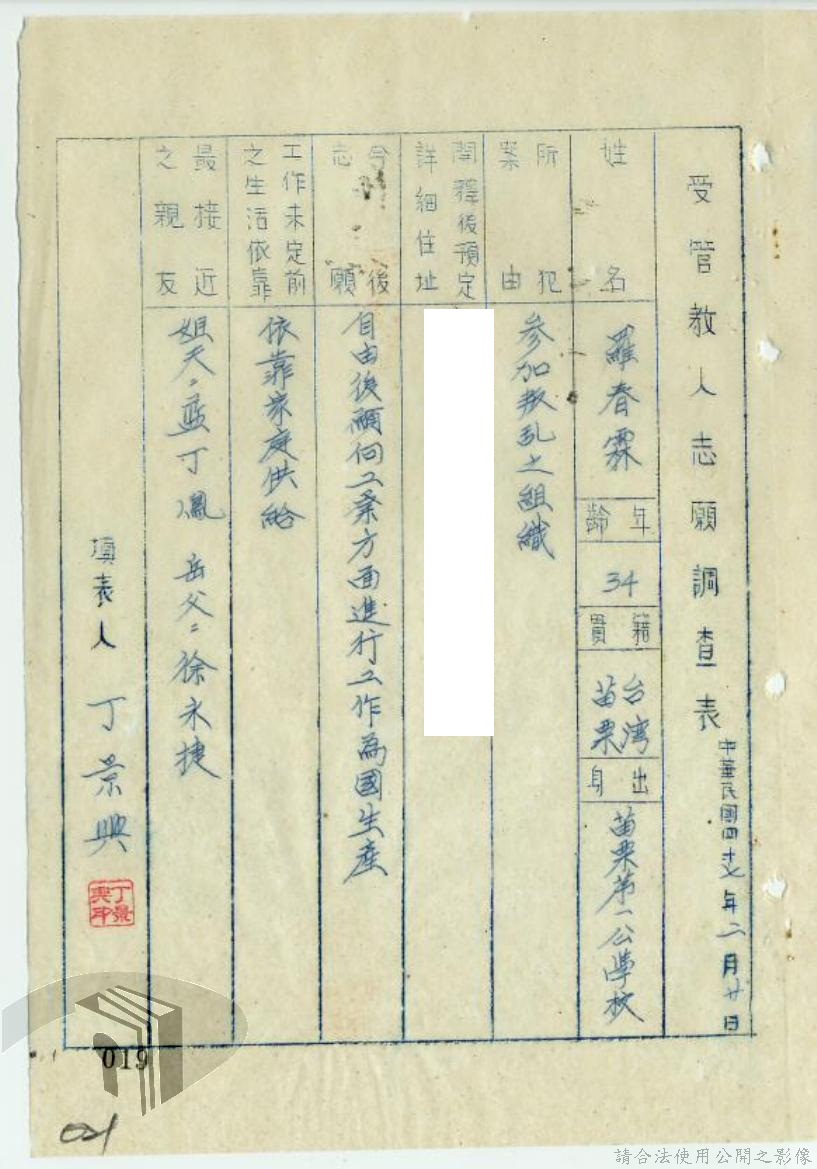 受管教人志願調查表
中華民國四十七年二月廿日
姓名
羅春霖
年齡
34
籍貫
台湾
苗栗
出身
苗栗第一公學校
所犯
案由
參加叛乱之組織
開釋後預定
詳細住址
今後
志願
自由後願向工業方面進行工作為國生產
工作未定前
之生活依靠
依靠家庭供給
最接近
之親友
姐夫：藍丁鳳 岳父：徐永捷
填表人 丁景興
019
021
請合法使用公開之影像